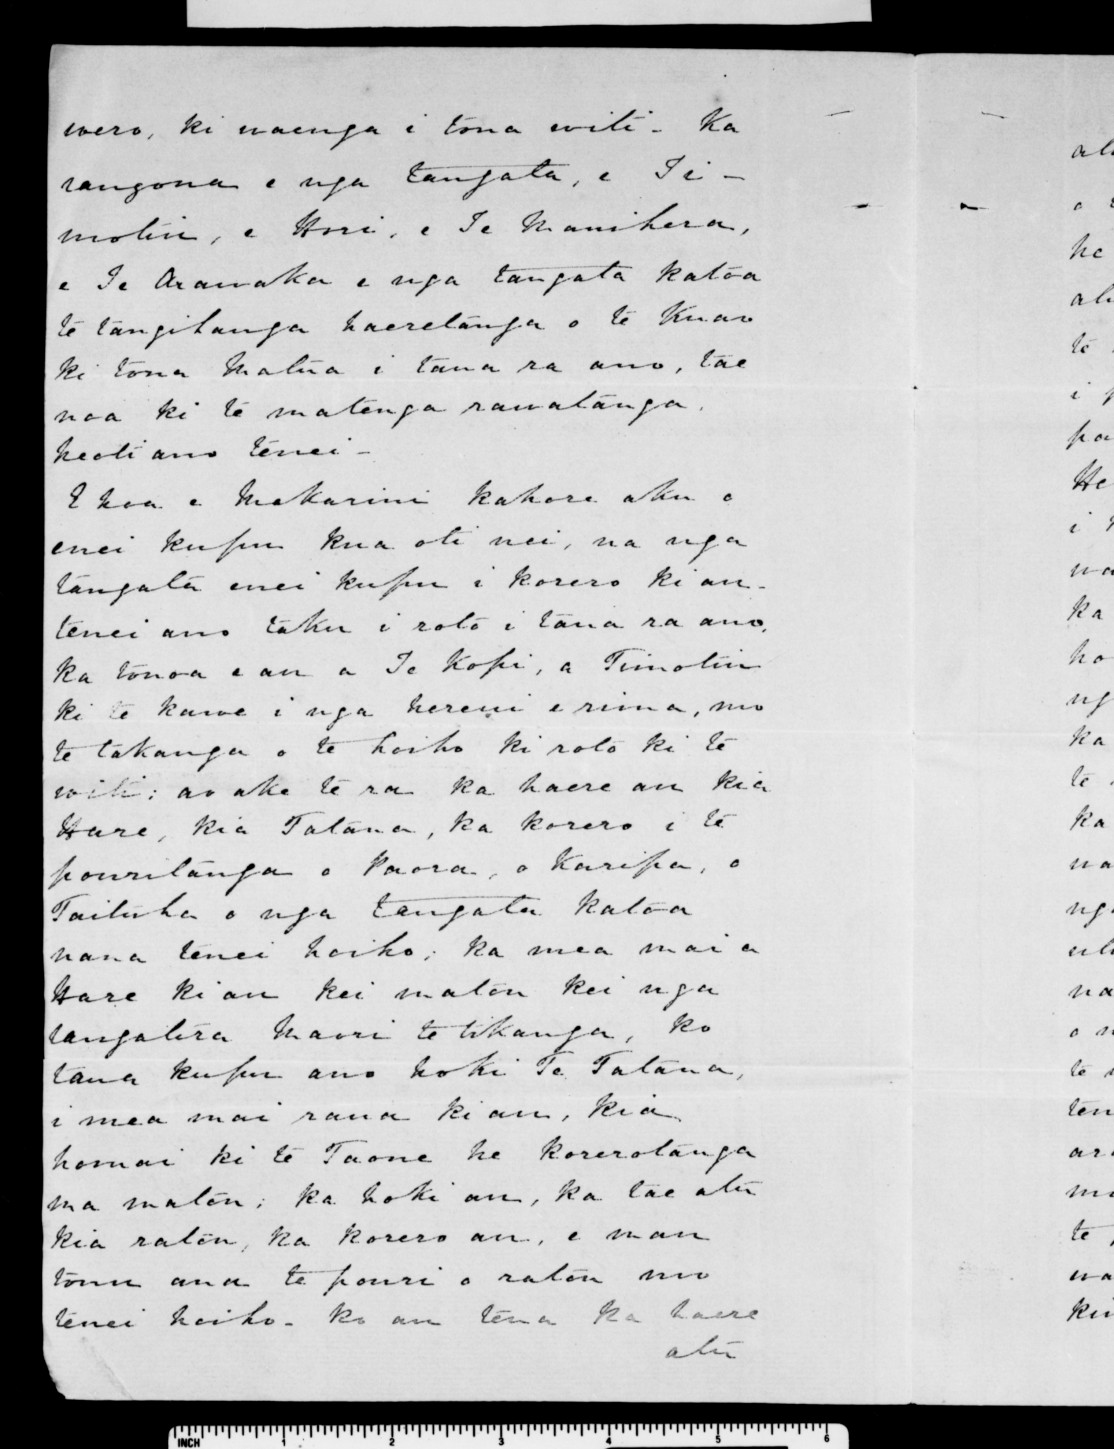 wero, ki waenga i tona witi - Ka
rangona e nga tangata, e Ti-
motiu, e Hori, e Te Manihera,
e Te Arawaka e nga tangata katoa
te tangihanga haeretanga o te Kuao
ki tona Matua i taua ra ano, tae
noa ki te matenga rawatanga.
heoti ano tenei -
E hoa e Makarini kahore aku o
enei kupu kua oti nei, na nga
tangata enei kupu i korero ki au -
tenei ano taku i roto i taua ra ano,
ka tonoa e au a Te Kopi, a Timotiu
ki te kawe i nga hereni e rima, mo
te takanga o te hoiho ki roto ki te
witi; ao ake te ra ka haere au kia
Hare, kia Tatana, ka korero i te
pouritanga o Paora, o Karipa, o
Taituha o nga tangata katoa
nana tenei hoiho; ka mea mai a
Hare ki au kei matou kei nga
rangatira Maori te tikanga, ko
tana kupu ano hoki Te Tatana,
i mea mai rana ki au, kia
homai ki te Taone he korerotanga
ma matou; ka hoki au, ka tae atu
kia ratou, ka korero au, e mau
tonu ana te pouri o ratou mo
tenei hoiho - ko au tena ka haere
atu
at
o
he
at
te
i
pa
He
i
wa
ka
ho
ng
ka
te
ka
na
ng
na
o
te
ten
ar
te
wa